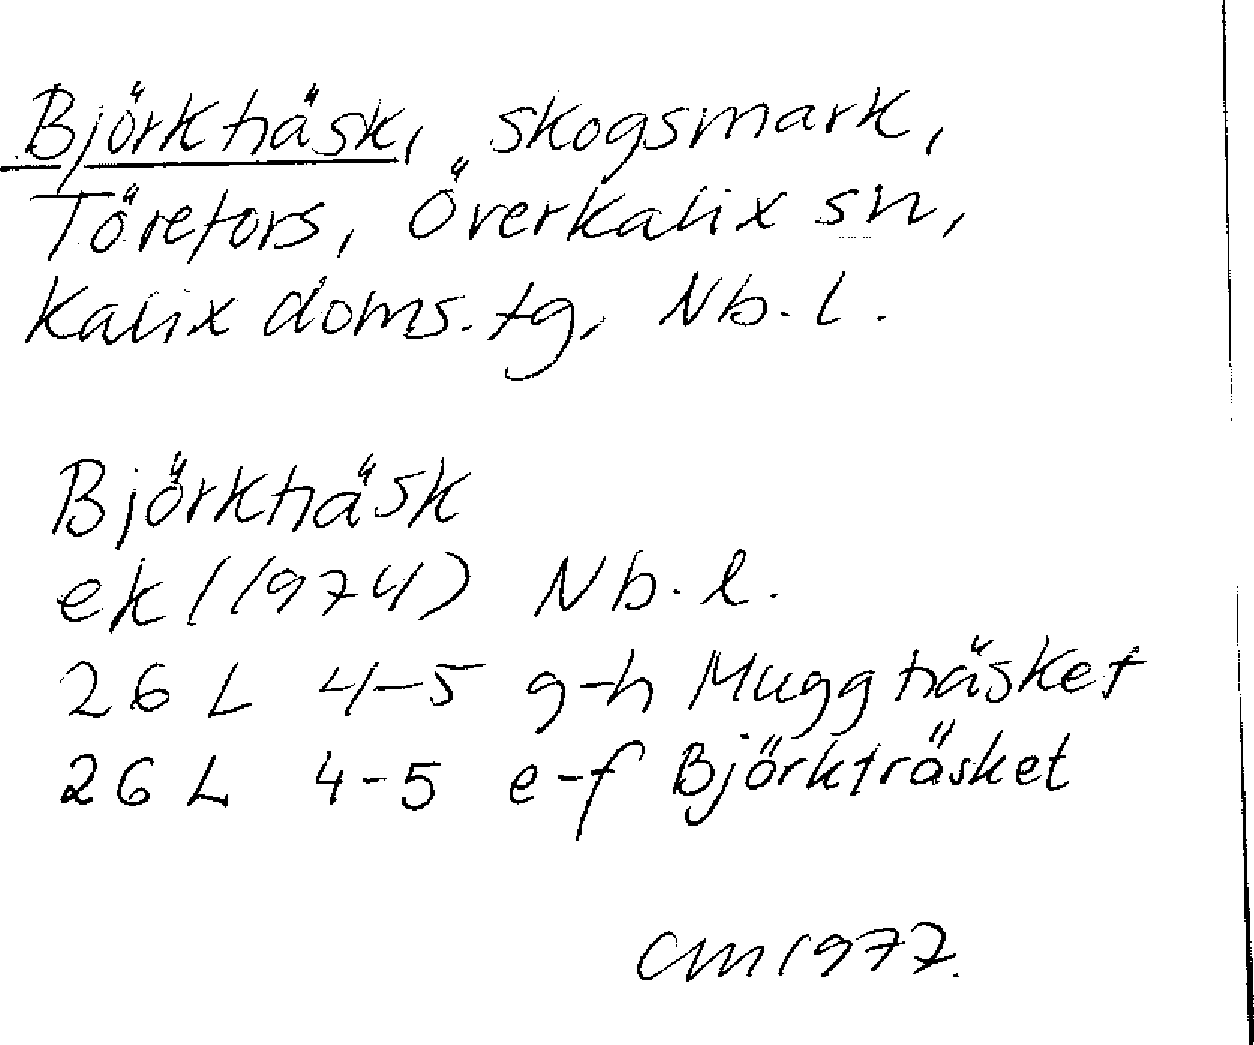 Björkträsk, skogsmark,
Törefors, Överkalix sn,
Kalix doms.tg, Nb.l.
Björkträsk
ek (1974) Nb.l.
26 L 4-5 g-h Muggträsket
26 L 4-5 e-f Björkträsket
CM 1977.